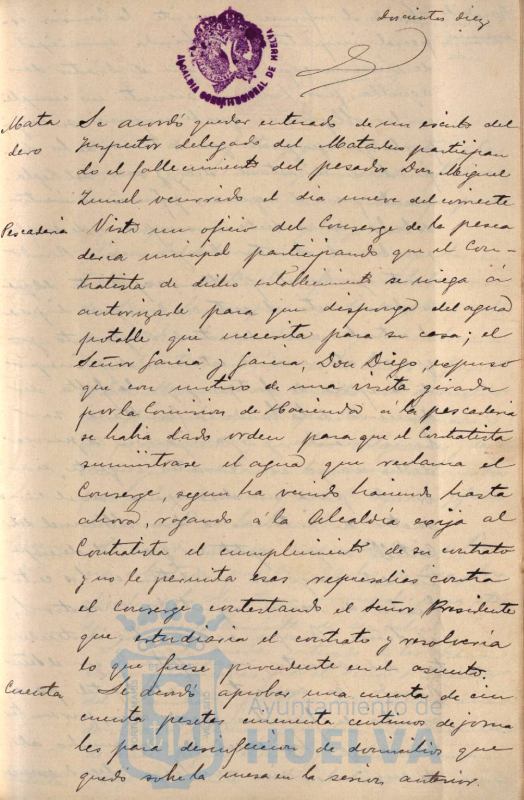 doscientos diez
ALCALDÍA CONSTITUCIONAL DE HUELVA
Mata
dero
Se acordó quedar enterado de un escrito del
Inspector delegado del Matadero participan
do el fallecimiento del pesador Don Miguel
ocurrido el dia nueve del corriente
Pescaderia
Visto un oficio del Conserge de la pesca
deria participando que el Con-
tratista de dicho establecimiento se niega á
autorizarle para que disponga del agua
potable que necesita para su casa; el
Señor Garcia y Garcia, Don Diego, expuso
que con motivo de una visita girada
por la Comision de Hacienda á la pescaderia
se habia dado orden para que el Contratista
suministrase el agua que reclama el
Conserge, segun ha venido haciendo hasta
ahora, rogando á la Alcaldía exija al
Contratista el cumplimiento de su contrato
y no le permita esas represalias contra
el conserge contestando el Señor Presidente
que estudiaria el contrato y resolvería
lo que fuese procedente en el asunto.
Cuenta
Se acordó aprobar una cuenta de cin
cuenta pesetas cincuenta centimos de jorna
les para desinfeccion de domicilios que
quedó sobre la mesa en la sesion anterior.
Ayuntamiento de
HUELVA